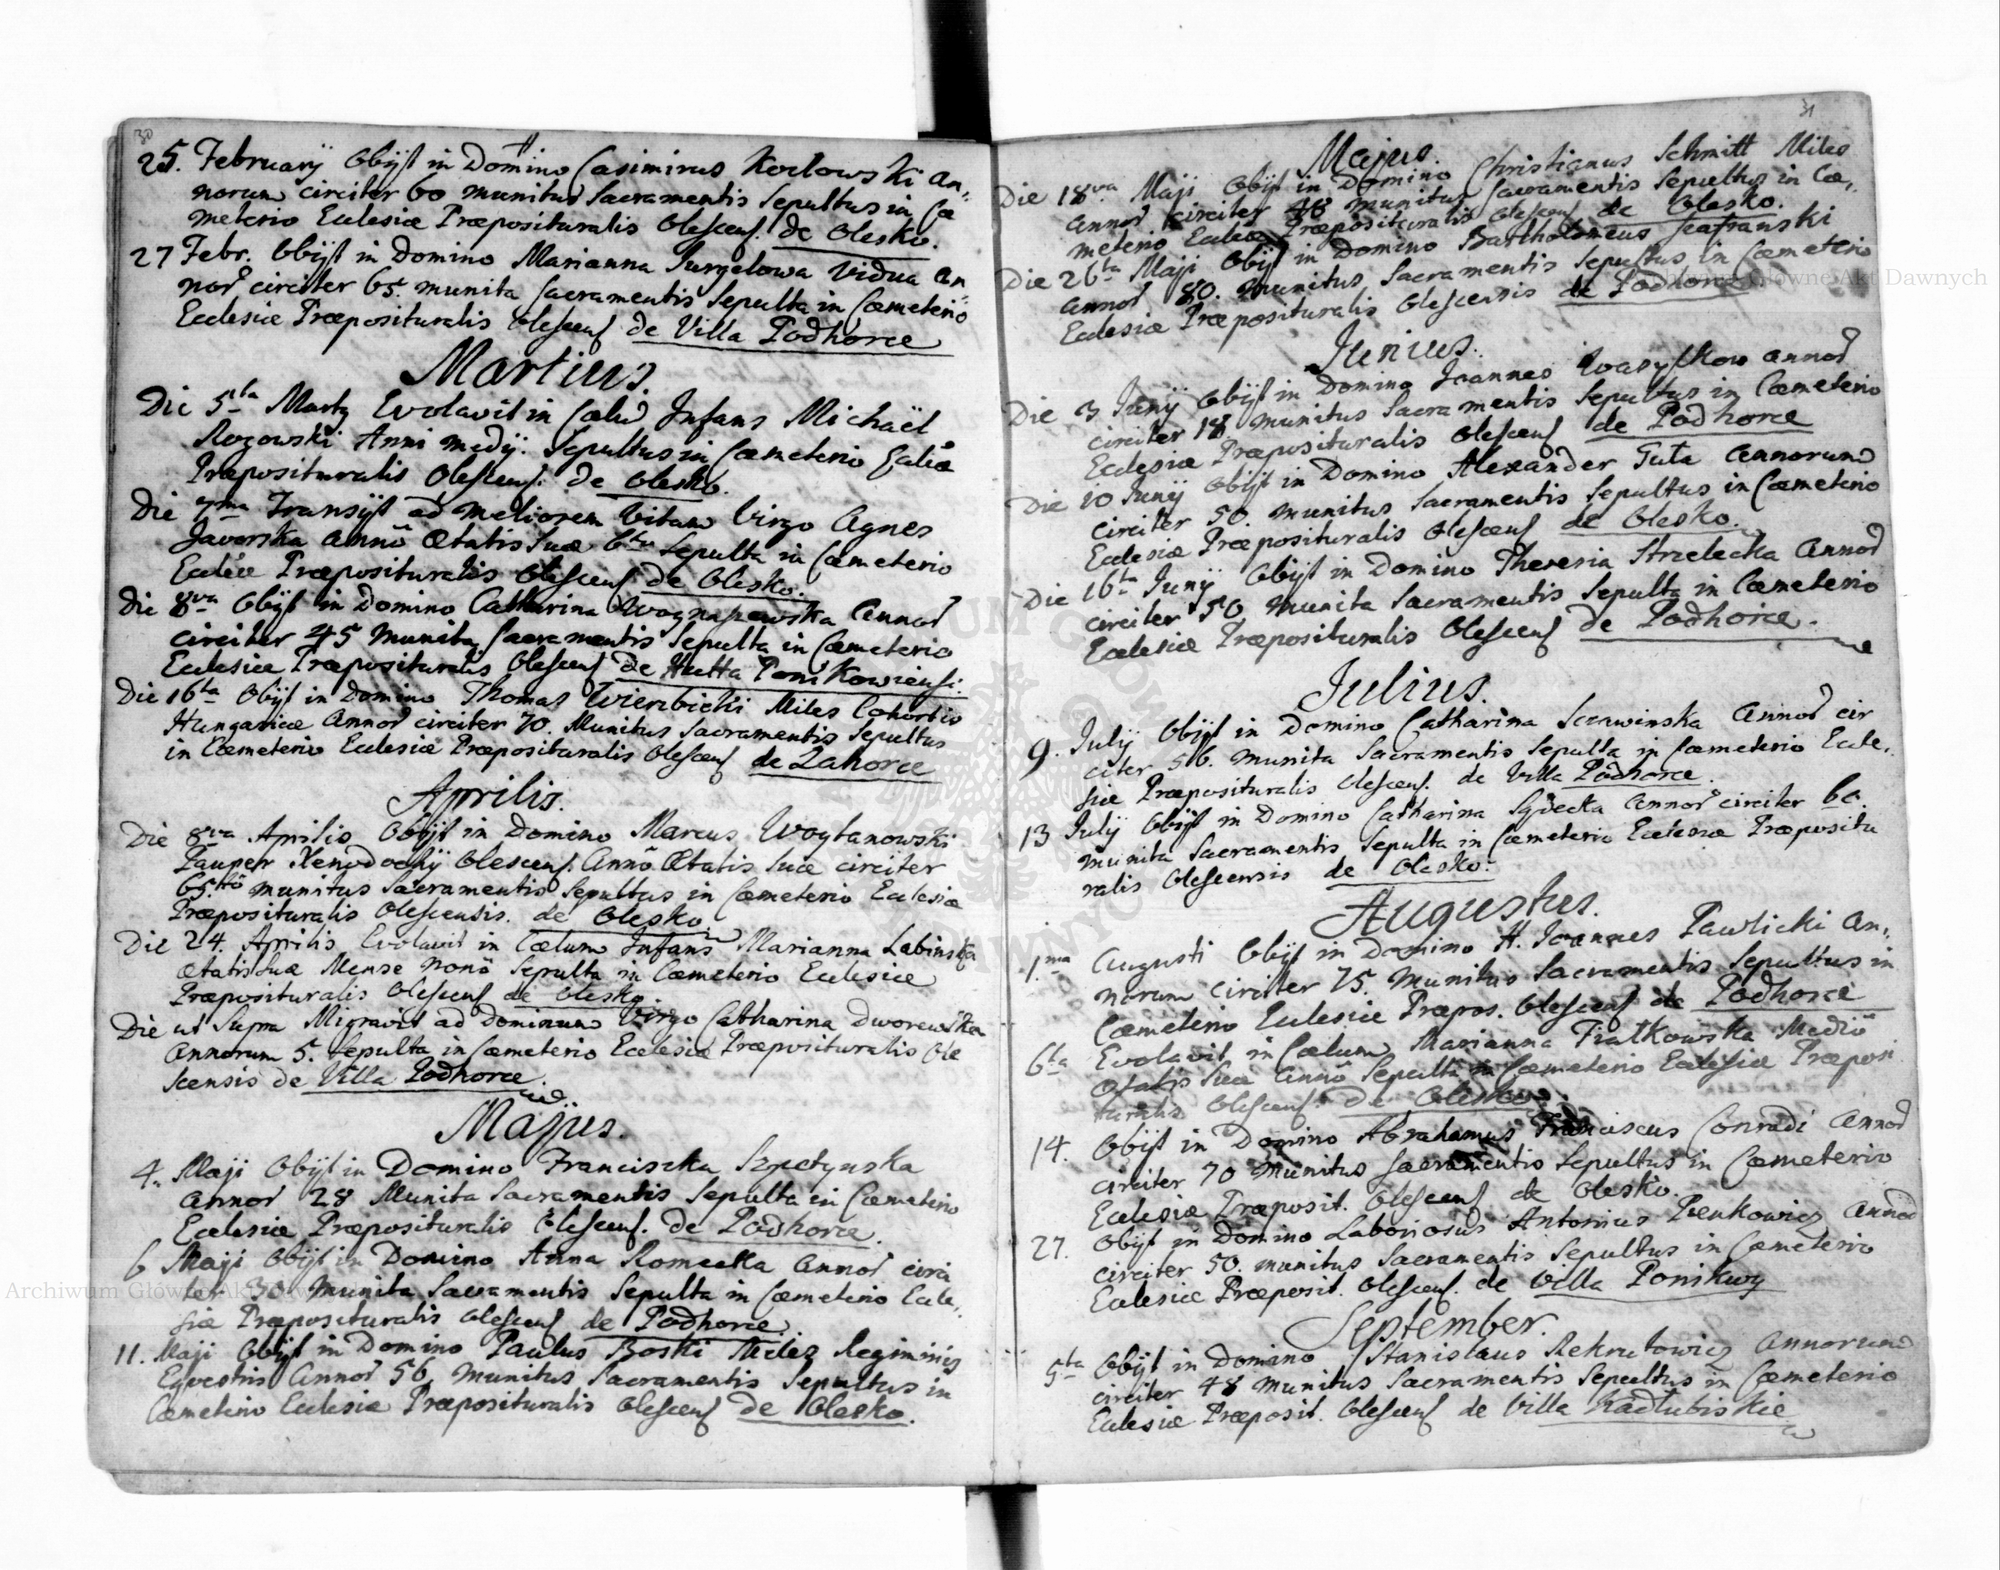 30
25. Februarij Obijt in Domino Casimirus Kozlowski An-
norum circiter 60 munitus Sacramentis Sepultus in Cœ
meterio Ecclesiæ Præposituralis Olescens. de Olesko.
27 Febr. Obijt in Domino Marianna Surgelowa Vidua An
nor circiter 65. munita Sacramentis Sepulta in Cœmeterio
Ecclesiæ Præposituralis Olescens de Villa Podhorce
Martius.
Die 5ta Martij Evolavit in Cœlū Infans Michaël
Rozowski Anni medij. Sepultus in Cœmeterio Ecliæ
Præposituralis Olescens: de Olesko.
Die 7ma Transijt ad meliorem Vitam Virgo Agnes
Javorska Annō Ætatis Suæ 6to Sepulta in Cœmeterio
Ecclæ Præposituralis Olescens de Olesko.
Die 8va Obijt in Domino Catharina Annor
circiter 45 Munita Sacramentis Sepulta in Cœmeterio
Ecclesiæ Præposituralis Olescens de Hutta Ponikowiensi.
Die 16ta Obijt in Domino Thomas Wierbicki Miles Cohortis
Hungaricæ Annor circiter 70. Munitus Sacramentis Sepultus
in Cœmeterio Ecclesiæ Præposituralis Olescens de Zahorce
Aprilis.
Die 8va Aprilis Obijt in Domino Marcus Woytanowski
Pauper Xenodochij Olescens. Annō Ætatis Suæ circiter
65tō munitus Sacramentis Sepultus in Cœmeterio Ecclesiæ
Præposituralis Olescensis. de Olesko.
Die 24. Aprilis Evolavit in Cœlum Infans Marianna Labinska
Ætatis Suæ Mense Nonō Sepulta in Cœmeterio Ecclesiæ
Præposituralis Olescens de Olesko.
Die ut Supra Migravit ad Dominum Virgo Catharina Dworewska
Annorum 5. Sepulta in Cœmeterio Ecclesiæ Præposituralis Ole
scensis de Villa Podhorce.
Majus.
4. Maji Obijt in Domino Franciszka Szpetynska
Annor 28 Munita Sacramentis Sepulta in Cœmeterio
Ecclesiæ Præposituralis Olescens. de Podhorce.
6 Maji Obijt in Domino Anna Romecka Annor circi
ter 30 Munita Sacramentis Sepulta in Cœmeterio Eccle-
siæ Præposituralis Olescens de Podhorce
11. Maji Obijt in Domino Paulus Boski Milez Regiminis
Eqvestris Annor 56 Munitus Sacramentis Sepultus in
Cœmeterio Ecclesiæ Præposituralis Olescens de Olesko.
31
Majus.
Die 18va Maji Obijt in Domino Christianus Schmitt Miles
Annor circiter 48 munitus Sacramentis Sepultus in Cœ-
meterio Ecclæ Præposituralis Olescens de Olesko.
Die 26ta Maji Obijt in Domino Bartholomeus Szafranski
Annor 80. munitus Sacramentis Sepultus in Cœmeterio
Ecclesiæ Præposituralis Olescensis de Podhorce
Junius.
Die 3 Junij Obijt in Domino Joannes Wasylkow Annor
circiter 18 munitus Sacramentis Sepultus in Cœmeterio
Ecclesiæ Præposituralis Olescens de Podhorce
Die 10 Junij Obijt in Domino Alexander Tuta Annorum
circiter 50. munitus Sacramentis Sepultus in Cœmeterio
Ecclesiæ Præposituralis Olescens de Olesko.
Die 16ta Junij Obijt in Domino Theresia Strzelecka Annor
circiter 50 Munita Sacramentis Sepulta in Cœmeterio
Ecclesiæ Præposituralis Olescens de Podhorce.
Julius.
9. Julij Obijt in Domino Catharina Sczawinska Annor cir
citer 56. Munita Sacramentis Sepulta in Cœmeterio Eccle-
siæ Præposituralis Olescens. de Villa Podhorce.
13 Julij Obijt in Domino Catharina Sydecka Annor circiter 60.
munita Sacramentis Sepulta in Cœmeterio Ecclesiæ Præpositu
ralis Olescensis de Olesko.
Augustus.
1.ma Augusti Obijt in Domino H. Joannes Pawlicki An-
norum circiter 75. Munitus Sacramentis Sepultus in
Cœmeterio Ecclesiæ Præpos. Olescens de Podhorce
6ta Evolavit in Cœlum Marianna Fialkowska Mediō
Ætatis Suæ Annō Sepulta in Cœmeterio Ecclesiæ Præposi
turalis Olescens. de Olesko.
14. Obijt in Domino Abrahamus Franciscus Conradi Annor
circiter 70 munitus Sacramentis Sepultus in Cœmeterio
Ecclesiæ Præposit. Olescens de Olesko.
27. Obijt in Domino Laboriosus Antonius Pienkowicz Annor
circiter 50. munitus Sacramentis Sepultus in Cœmeterio
Ecclesiæ Præposit. Olescens. de Villa Ponikwy
September.
5ta Obijt in Domino Stanislaus Rekrutowicz Annorum
circiter 48 munitus Sacramentis Sepultus in Cœmeterio
Ecclesiæ Præposit. Olescens de Villa Kadlubiskie
Archiwum Główne Akt Dawnych